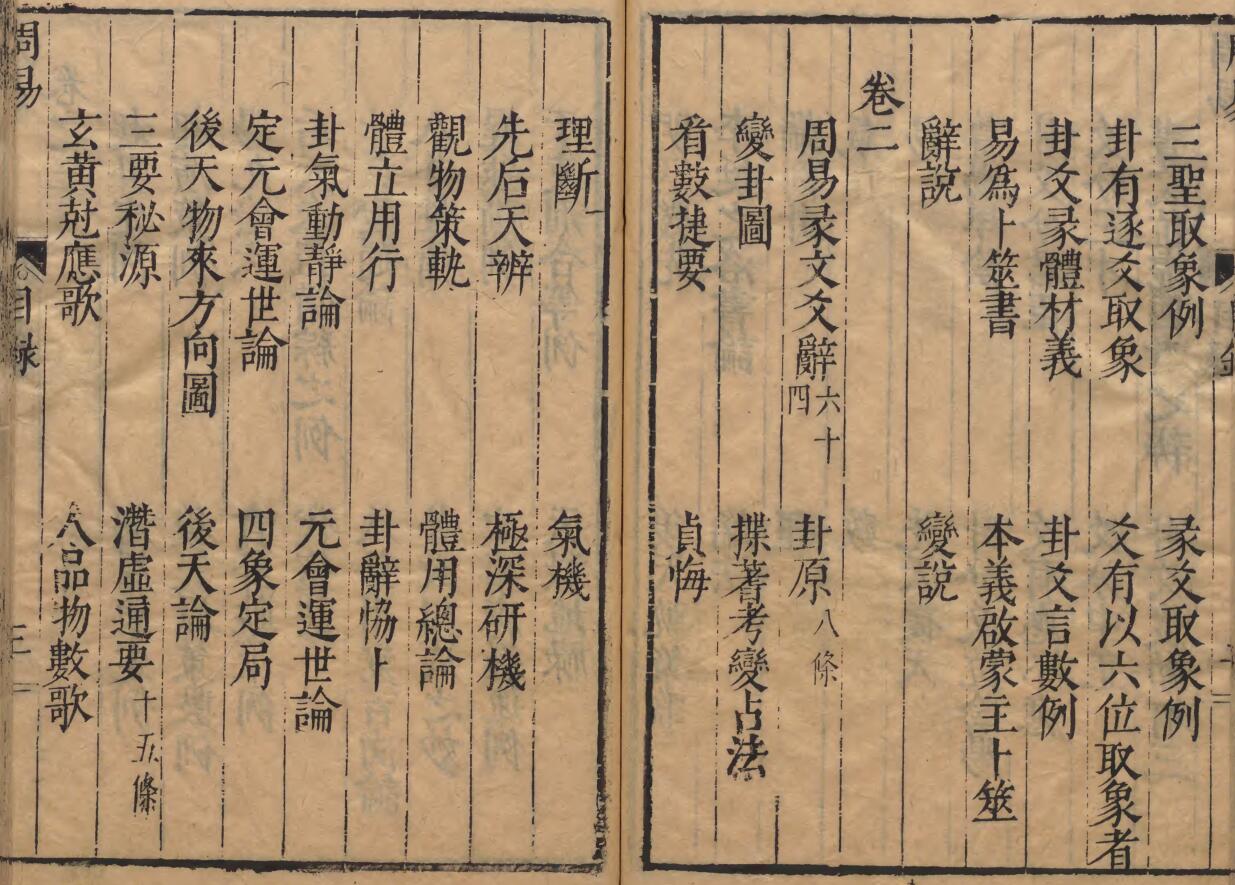 三聖取象例　彖爻取象例
卦有逐爻取象　爻有以六位取象者
卦爻彖體材義　卦爻言數例
易爲卜筮書　本義啟蒙主卜筮
辭說　變說
卷二
周易彖文爻辭六十四　卦原八條
變卦圖　揲蓍考變占法
看數捷要　貞悔
理斷　氣機
先后天辨　極深研機
觀物策軌　體用總論
體立用行　卦辭恊卜
卦氣動靜論　元會運世論
定元會運世論　四象定局
後天物來方向圖　後天論
三要秘源　潛虛通要十五條
玄黃尅應歌　八品物數歌
周易　目録　三